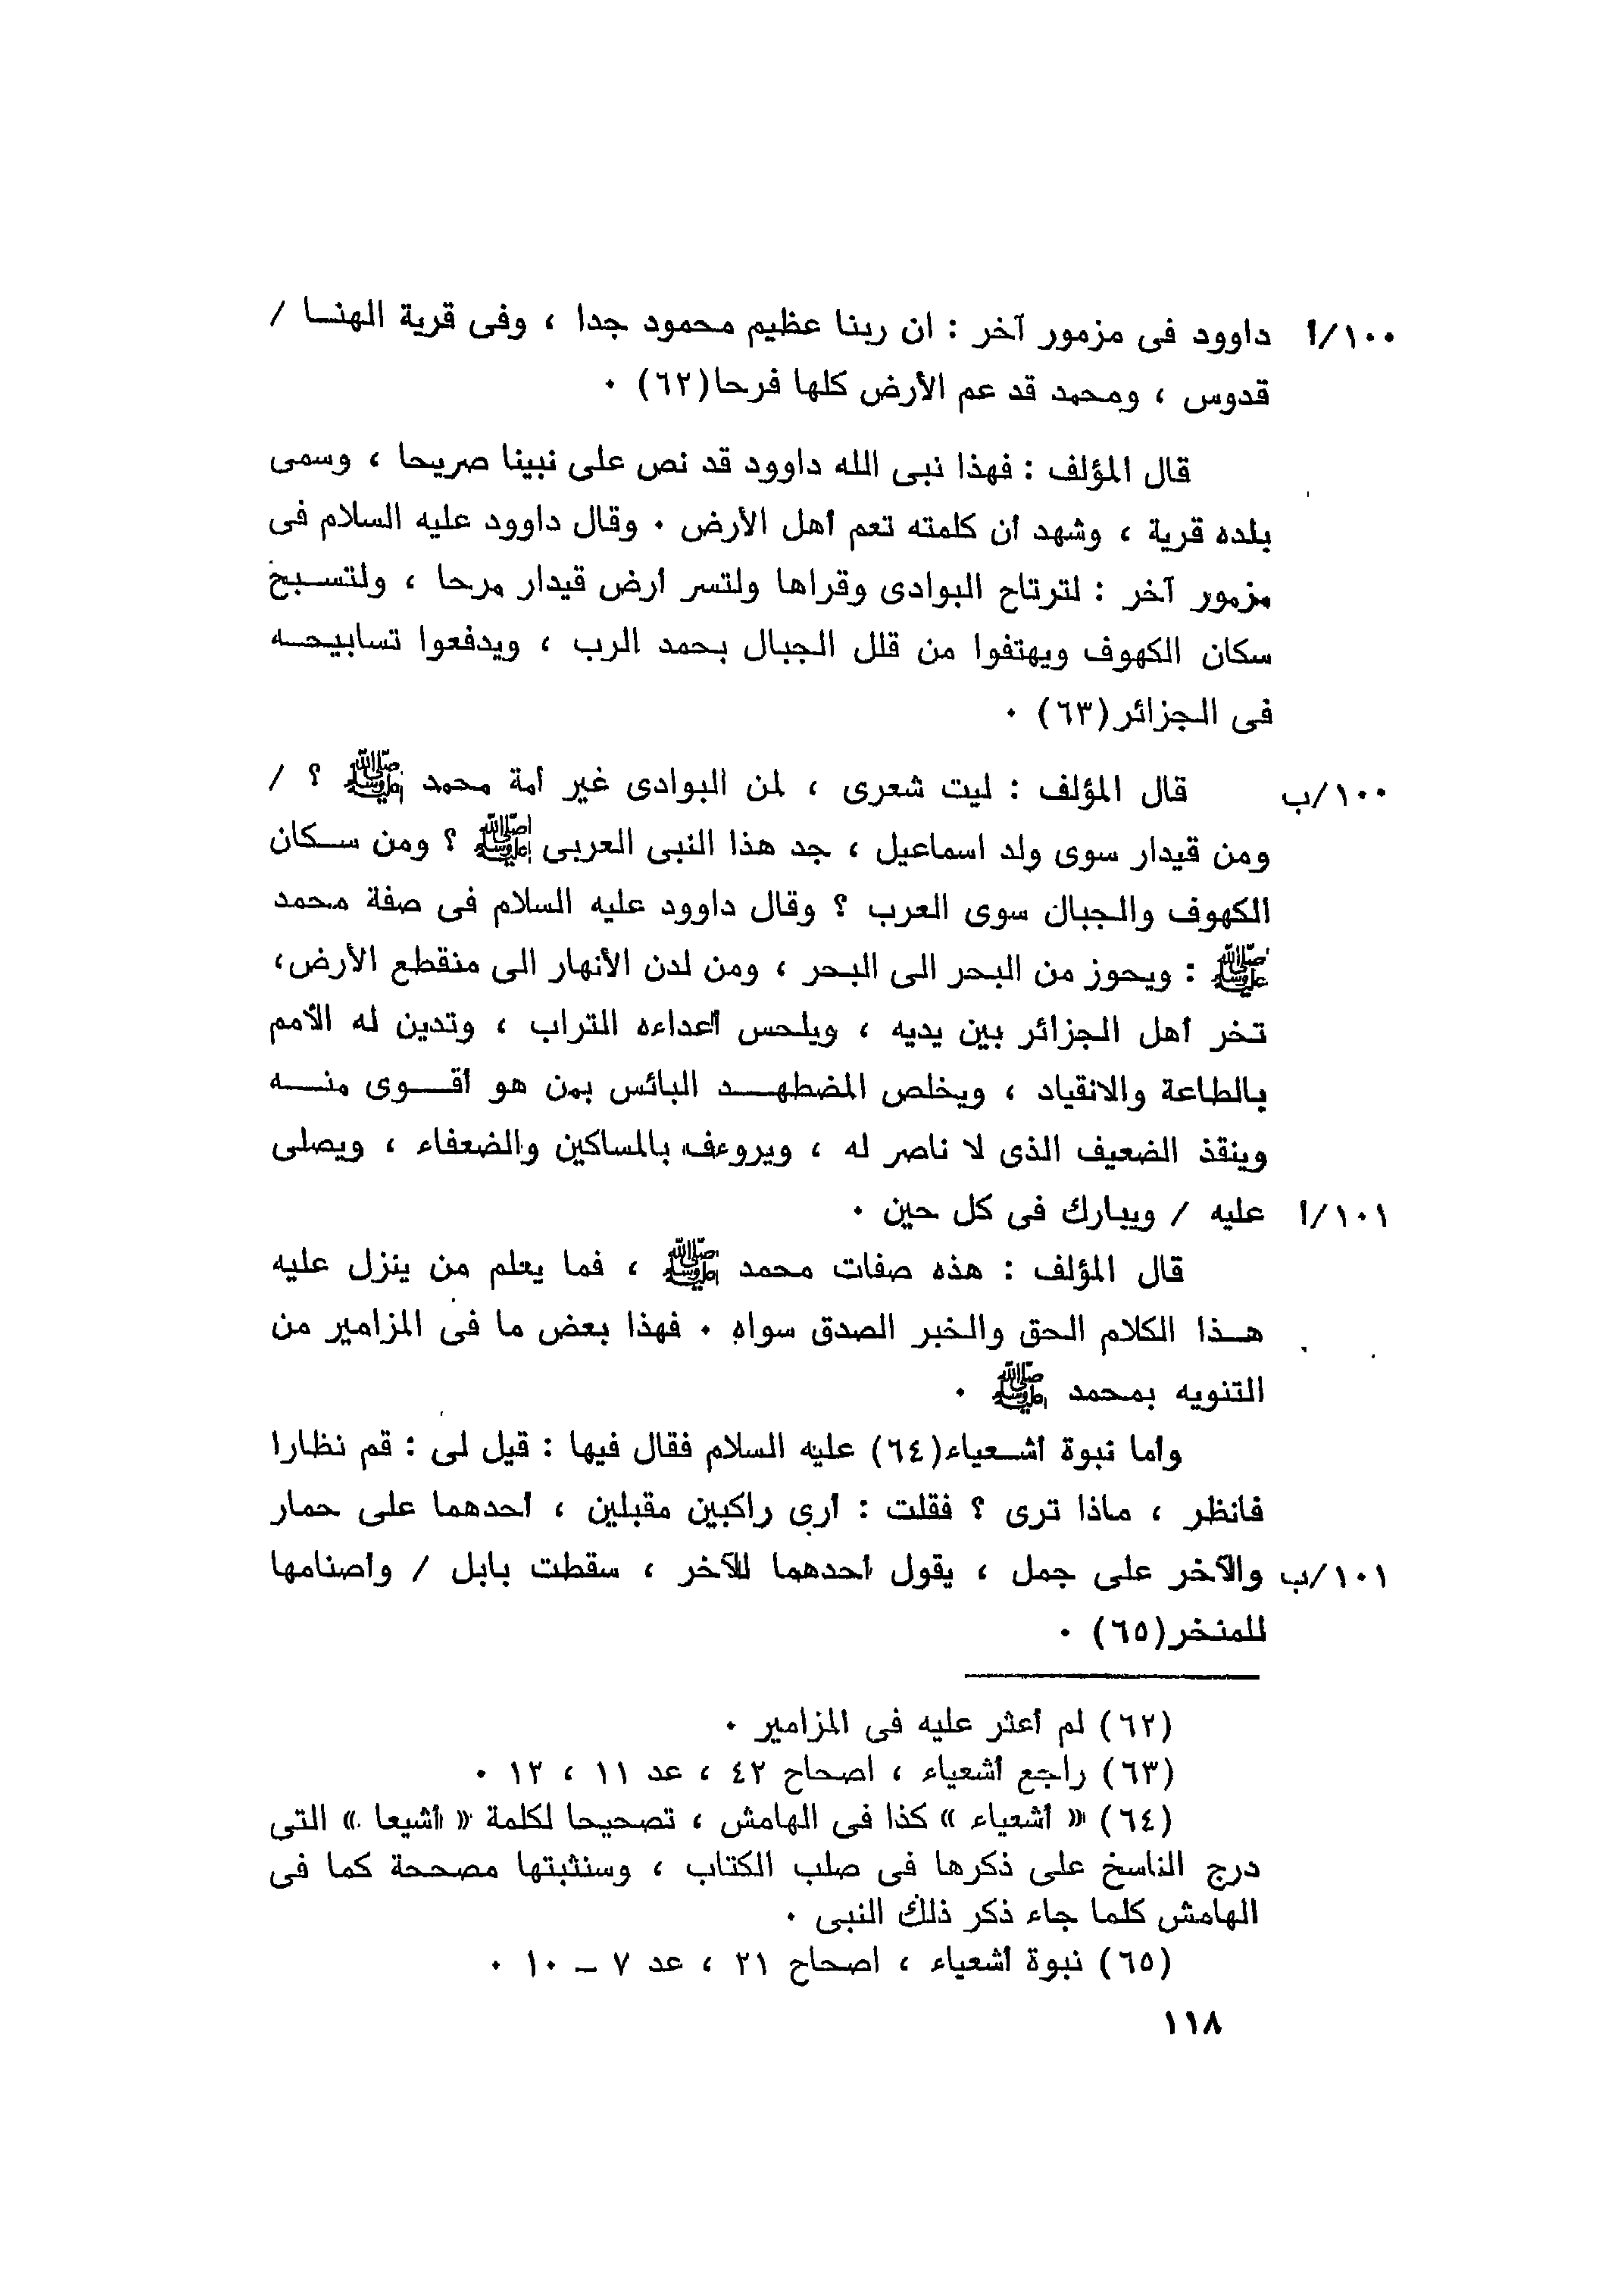 ١٠٠/أ داوود فى مزمور آخر : ان ربنا عظيم محمود جدا ، وفى قرية الهنا /
قدوس ، ومحمد قد عم الأرض كلها فرحا(٦٢) .
قال المؤلف : فهذا نبى الله داوود قد نص على نبينا صريحا ، وسمى
بلده قرية ، وشهد أن كلمته تعم أهل الأرض . وقال داوود عليه السلام فى
مزمور آخر : لترتاح البوادى وقراها ولتسر أرض قيدار مرحا ، ولتسبح
سكان الكهوف ويهتفوا من قلل الجبال بحمد الرب ، ويدفعوا تسابيحه
فى الجزائر(٦٣) .
١٠٠/ب قال المؤلف : ليت شعرى ، لمن البوادى غير أمة محمد ﷺ ؟ /
ومن قيدار سوى ولد اسماعيل ، جد هذا النبى العربى ﷺ ؟ ومن سكان
الكهوف والجبال سوى العرب ؟ وقال داوود عليه السلام فى صفة محمد
ﷺ : ويحوز من البحر الى البحر ، ومن لدن الأنهار الى منقطع الأرض،
تخر أهل الجزائر بين يديه ، ويلحس أعداءه التراب ، وتدين له الأمم
بالطاعة والانقياد ، ويخلص المضطهد البائس بمن هو أقوى منه
وينقذ الضعيف الذى لا ناصر له ، ويروءف بالمساكين والضعفاء ، ويصلى
١٠١/أ عليه / ويبارك فى كل حين .
قال المؤلف : هذه صفات محمد ﷺ ، فما يعلم من ينزل عليه
هذا الكلام الحق والخبر الصدق سواه . فهذا بعض ما فى المزامير من
التنويه بمحمد ﷺ .
وأما نبوة أشعياء(٦٤) عليه السلام فقال فيها : قيل لى : قم نظارا
فانظر ، ماذا ترى ؟ فقلت : أرى راكبين مقبلين ، أحدهما على حمار
١٠١/ب والآخر على جمل ، يقول أحدهما للآخر ، سقطت بابل / وأصنامها
للمنخر(٦٥) .
(٦٢) لم أعثر عليه فى المزامير .
(٦٣) راجع أشعياء ، اصحاح ٤٢ ، عد ١١ ، ١٢ .
(٦٤) « أشعياء » كذا فى الهامش ، تصحيحا لكلمة « أشيعا » التى
درج الناسخ على ذكرها فى صلب الكتاب ، وسنثبتها مصححة كما فى
الهامش كلما جاء ذكر ذلك النبى .
(٦٥) نبوة أشعياء ، اصحاح ٢١ ، عد ٧ – ١٠ .
١١٨